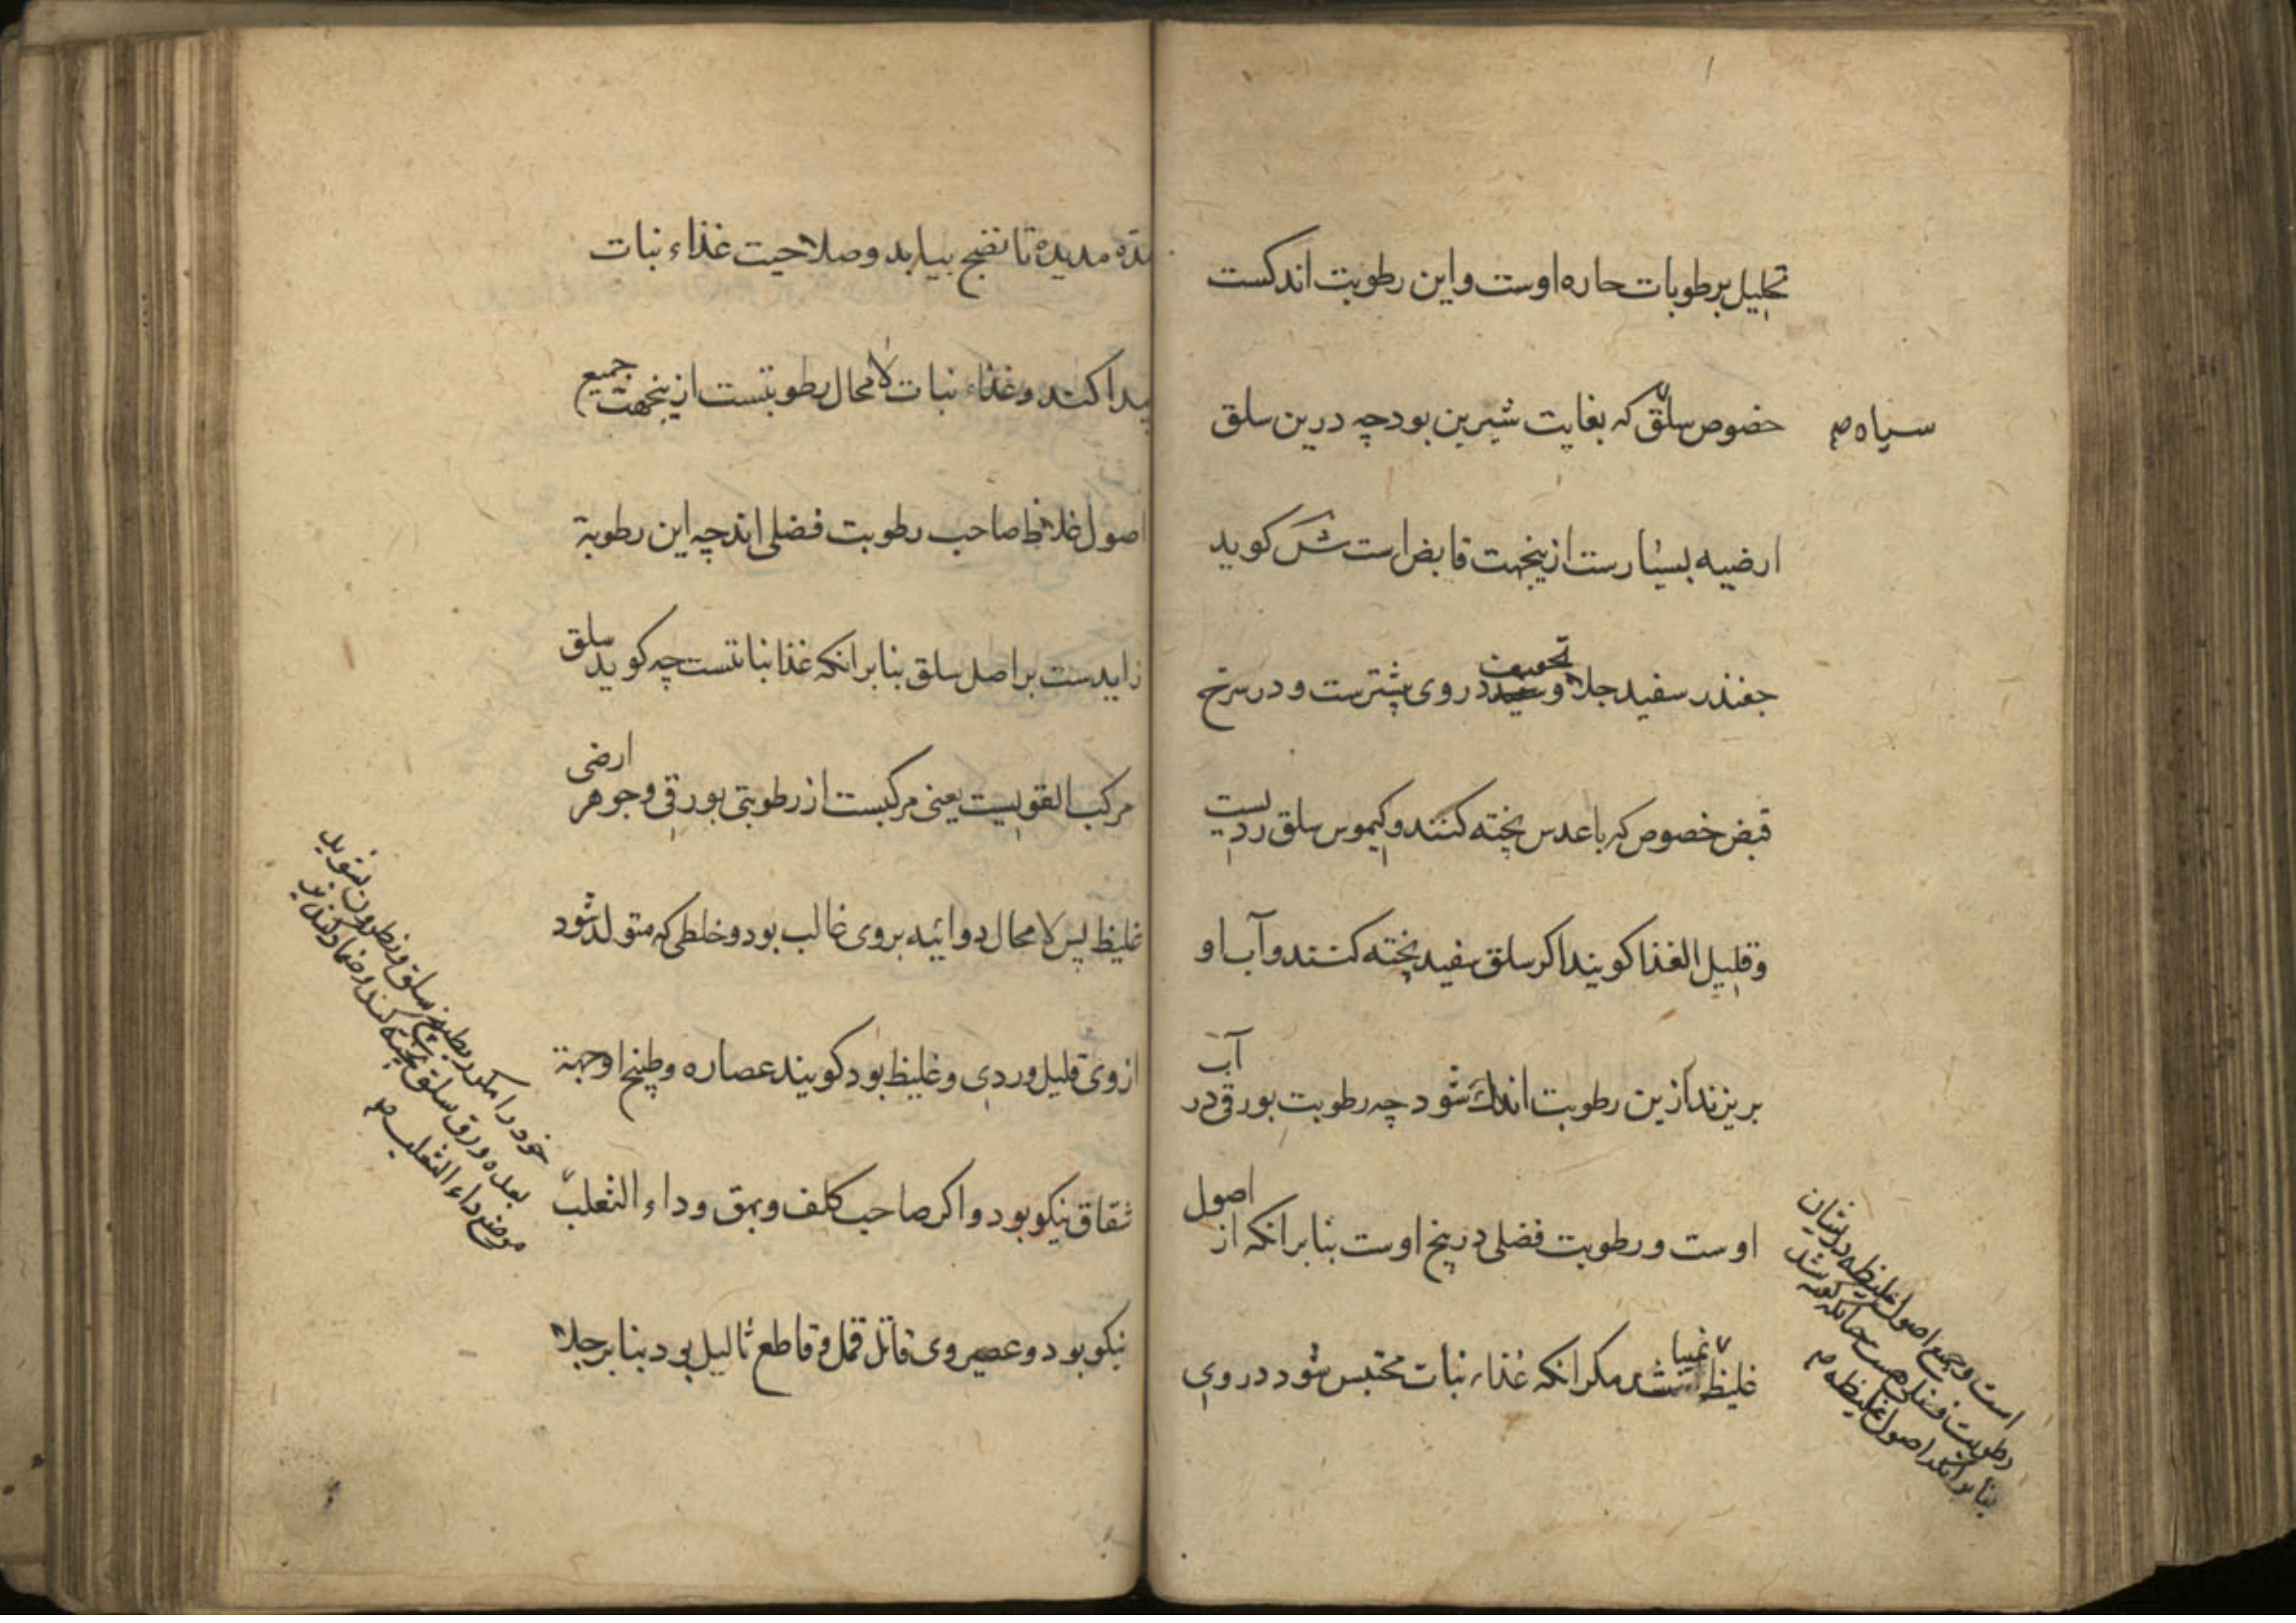 تحلیل بر رطوبات حاره اوست و این رطوبت اندکست
خصوص سلق که بغایت شیرین بود چه درین سلق
سیاه صح
ارضیه بسیارست ازینجهت قابض است ش کوید
جغندر سفید جلا و تجفیف در وی بیشترست و در سرخ
قبض خصوص که با عدس پخته کنند و کیموس سلق ردیست
و قلیل الغذا کویند اکر سلق سفید پخته کنند و آب او
بریزند ازین رطوبت اندک شود چه رطوبت بورقی در آب
اوست و رطوبت فضلی در بیخ اوست بنا برانکه از اصول
غلیظ نمیباشد مکر انکه غذاء نبات محتبس شود در وی
است و جمیع اصول غلیظه در ایشان
رطوبت فضلی هست
بنا برانکه اصول غلیظه صح
مدّه مدیده تا نضج بیابد و صلاحیت غذاء نبات
پیدا کند و غذاء نبات لا محال رطوبتست ازینجهت جمیع
اصول غلاظ صاحب رطوبت فضلی اند چه این رطوبة
زایدست بر اصل سلق بنا برانکه غذا نباتست چه کوید سلق
مرکب القویست یعنی مرکبست از رطوبتی بورقی و جوهر ارضی
غلیظ پس لا محال دوائیه بر وی غالب بود و خلطی که متولد شود
از وی قلیل و ردی و غلیظ بود کویند عصاره و طبیخ او جهة
شقاق نیکو بود و اکر صاحب کلف و بهق و داء الثعلب
نیکو بود و عصیر وی قاتل قمل و قاطع ثالیل بود بنا بر جلا
خود را مکرر بطبیخ سلق و نطرون بشوید
بعده ورق سلق پخته کنند و ضماد کنند بر
موضع داء الثعلب صح